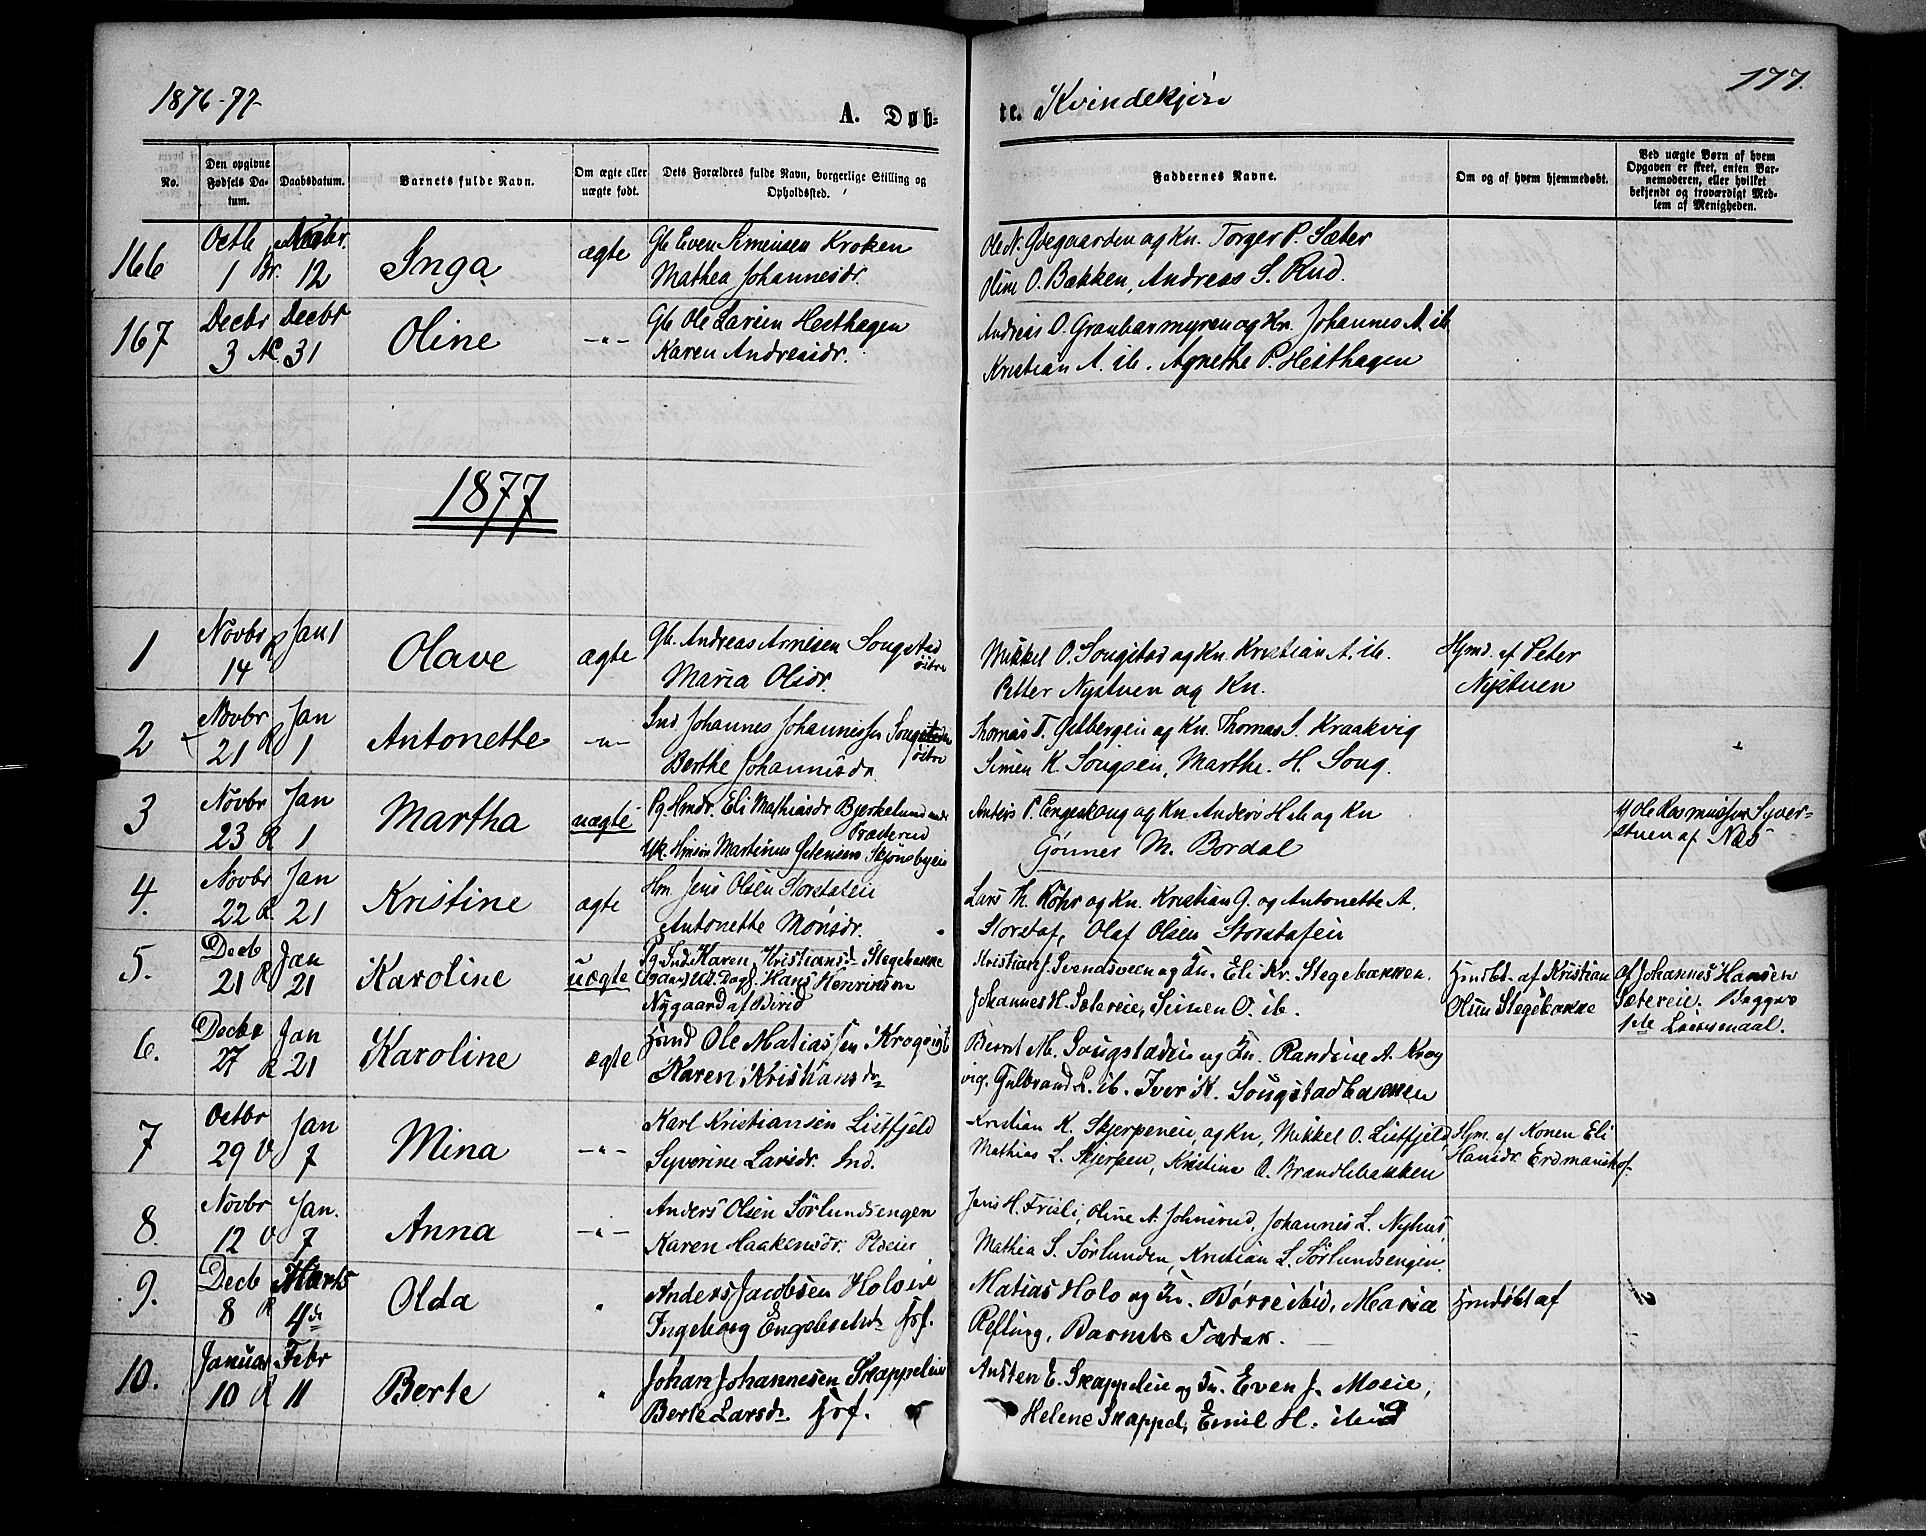 1876-77
A. Døb-
te. Kvindekjøn
177.
No.
Den opgivne Fødsels Da-tum.
Daabsdatum.
Barnets fulde Navn.
Om ægte eller uægte født.
Dets Forældres fulde Navn, borgerlige Stilling og Opholdssted.
Faddernes Navne.
Om og af hvem hjemmedøbt.
Ved uægte Børn af hvem Opgaven er skeet, enten Bar-nemoderen, eller hvilket bekjendt og troværdigt Med-lem af Menigheden.
166 Octb 1 Br. Novbr. 12 Inga ægte Gb Even Simensen Kroken
Mathea Johannesdr.
Ole N. Ødegaarden og Kn. Torger P. Sæter
Oline O. Bakken, Andreas S. Rud.
167 Decbr 3 Decbr 31 Oline -"- Gb Ole Larsen Hesthagen
Karen Andreasdr.
Andreas O. Graubarmyren og Kn. Johannes A. ib.
Kristian A. ib. Agnethe P. Hesthagen
1877
1 Novbr 14 R Jan 1 Olave ægte Gb. Andreas Arnesen Sougstad østre
Maria Olsdr.
Mikkel O. Sougstad og Kn. Kristian A. ib.
Petter Nystuen og Kn.
Hjmd. af Peter
Nystuen
2 Novbr 21 R Jan 1 Antonette -"- Ind Johannes Johannessen østre
Berthe Johannesdr.
Thomas T. og Kn. Thomas S. Kraakvig
Simen K. Sougseien, Marthe H. Soug.
3 Novbr 23 R Jan 1 Martha uægte Pg. Hmdr. Eli Mathiasdr Bjerkelund
Uk. Martinus Skjønsbyeie
Anders P. Engeskoug og Kn Anders H ib og Kn
Gønner M. Bordal
Ole Rasmussen Syver-
stuen af Næs
4. Novbr 22 R. Jan 21 Kristine ægte Hm Jens Olsen Storstafeie
Antonette Monsdr.
Lars Th. og Kn. Kristian G. og Antonette A.
Storstaf, Olaf Olsen Storstafeie
5. Decb 21 R Jan 21 Karoline uægte Pg Ind. Karen Kristiansdr. Stegebakke
Uk. Dagl. Hans Henriksen
Nygaard af Birid
Kristian J. Svendsveen og Kn. Eli Kr. Stegebakken.
Johannes H. Sætereie, Simen O. ib.
Hmdbt. af Kristian
Olsen Stegebakke
Af Johannes Hansen
Sætereie.
6. Decbr 27 R Jan 21 Karoline ægte Ole Matiassen Krogvigt
Karen Kristiansdr
Bernt M. Sougstadeie og Kn. Randine A. Krog
vig. Gulbrand L. ib. Iver K. Sougstadbakken
7 Octbr 29 V Jan 7 Mina -"- Karl Kristiansen Listfjeld
Syverine Larsdr. Ind.
Kristian K. Skjerpeneie, og Kn, Mikkel O. Listfjeld,
Mathias L. Skjerpen, Kristine O. Brandlebakken
Hjm. af Konen Eli
Hansdr. Erdmanshof.
8. Novbr 12 V Jan. 7 Anna -"- Anders Olsen Sørlundsengen
Karen Haakensdr.
Jens H. Frisli, Oline A. Johnsrud, Johannes L. Nyhus,
Mathea S. Sørlunden, Kristian L. Sørlundsengen.
9. Decb 8 R Marts 4de Olda " Anders Jacobsen Holoeie
Ingeborg Engebretsdr
Matias Holo og Kn. Børre ibid, Maria
Refling, Barnets Fader.
Hmdøbt af
10. Januar 10 R Febr 11 Berte " Johan Johannesen Skappeleie
Berte Larsdr
Austen E. Skappeleie og Kn. Even J. Moeie,
Helene Skappel, Emil H. ibid